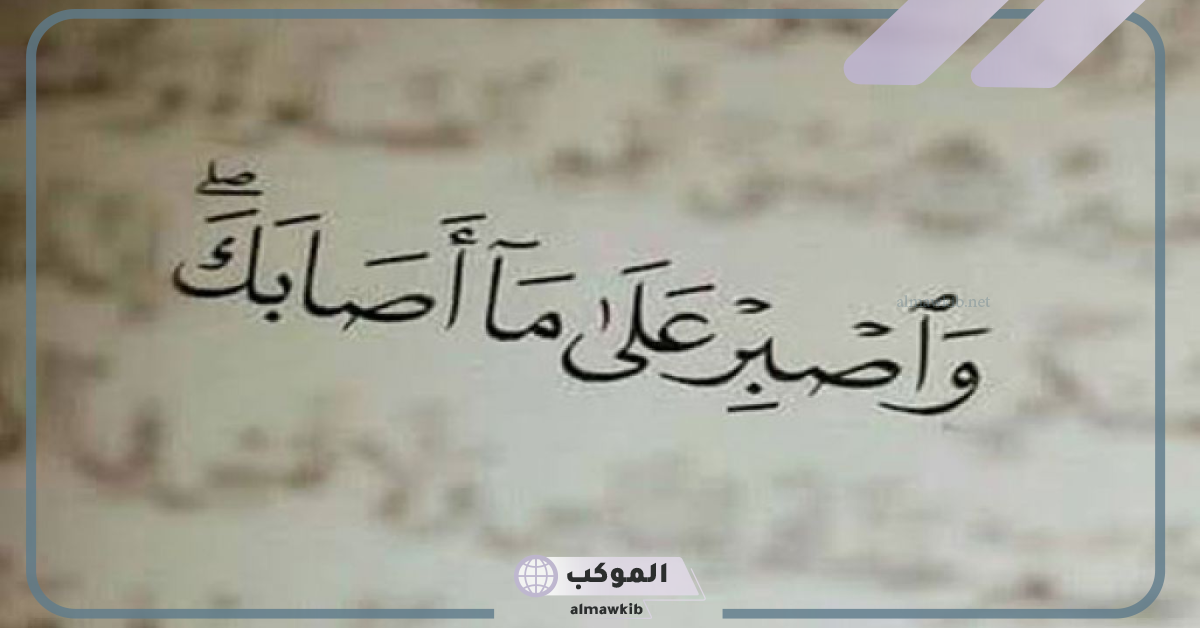 almawkib.net
وَٱصۡبِرۡ عَلَىٰ مَآ أَصَابَكَۖ
الموكب
almawkib